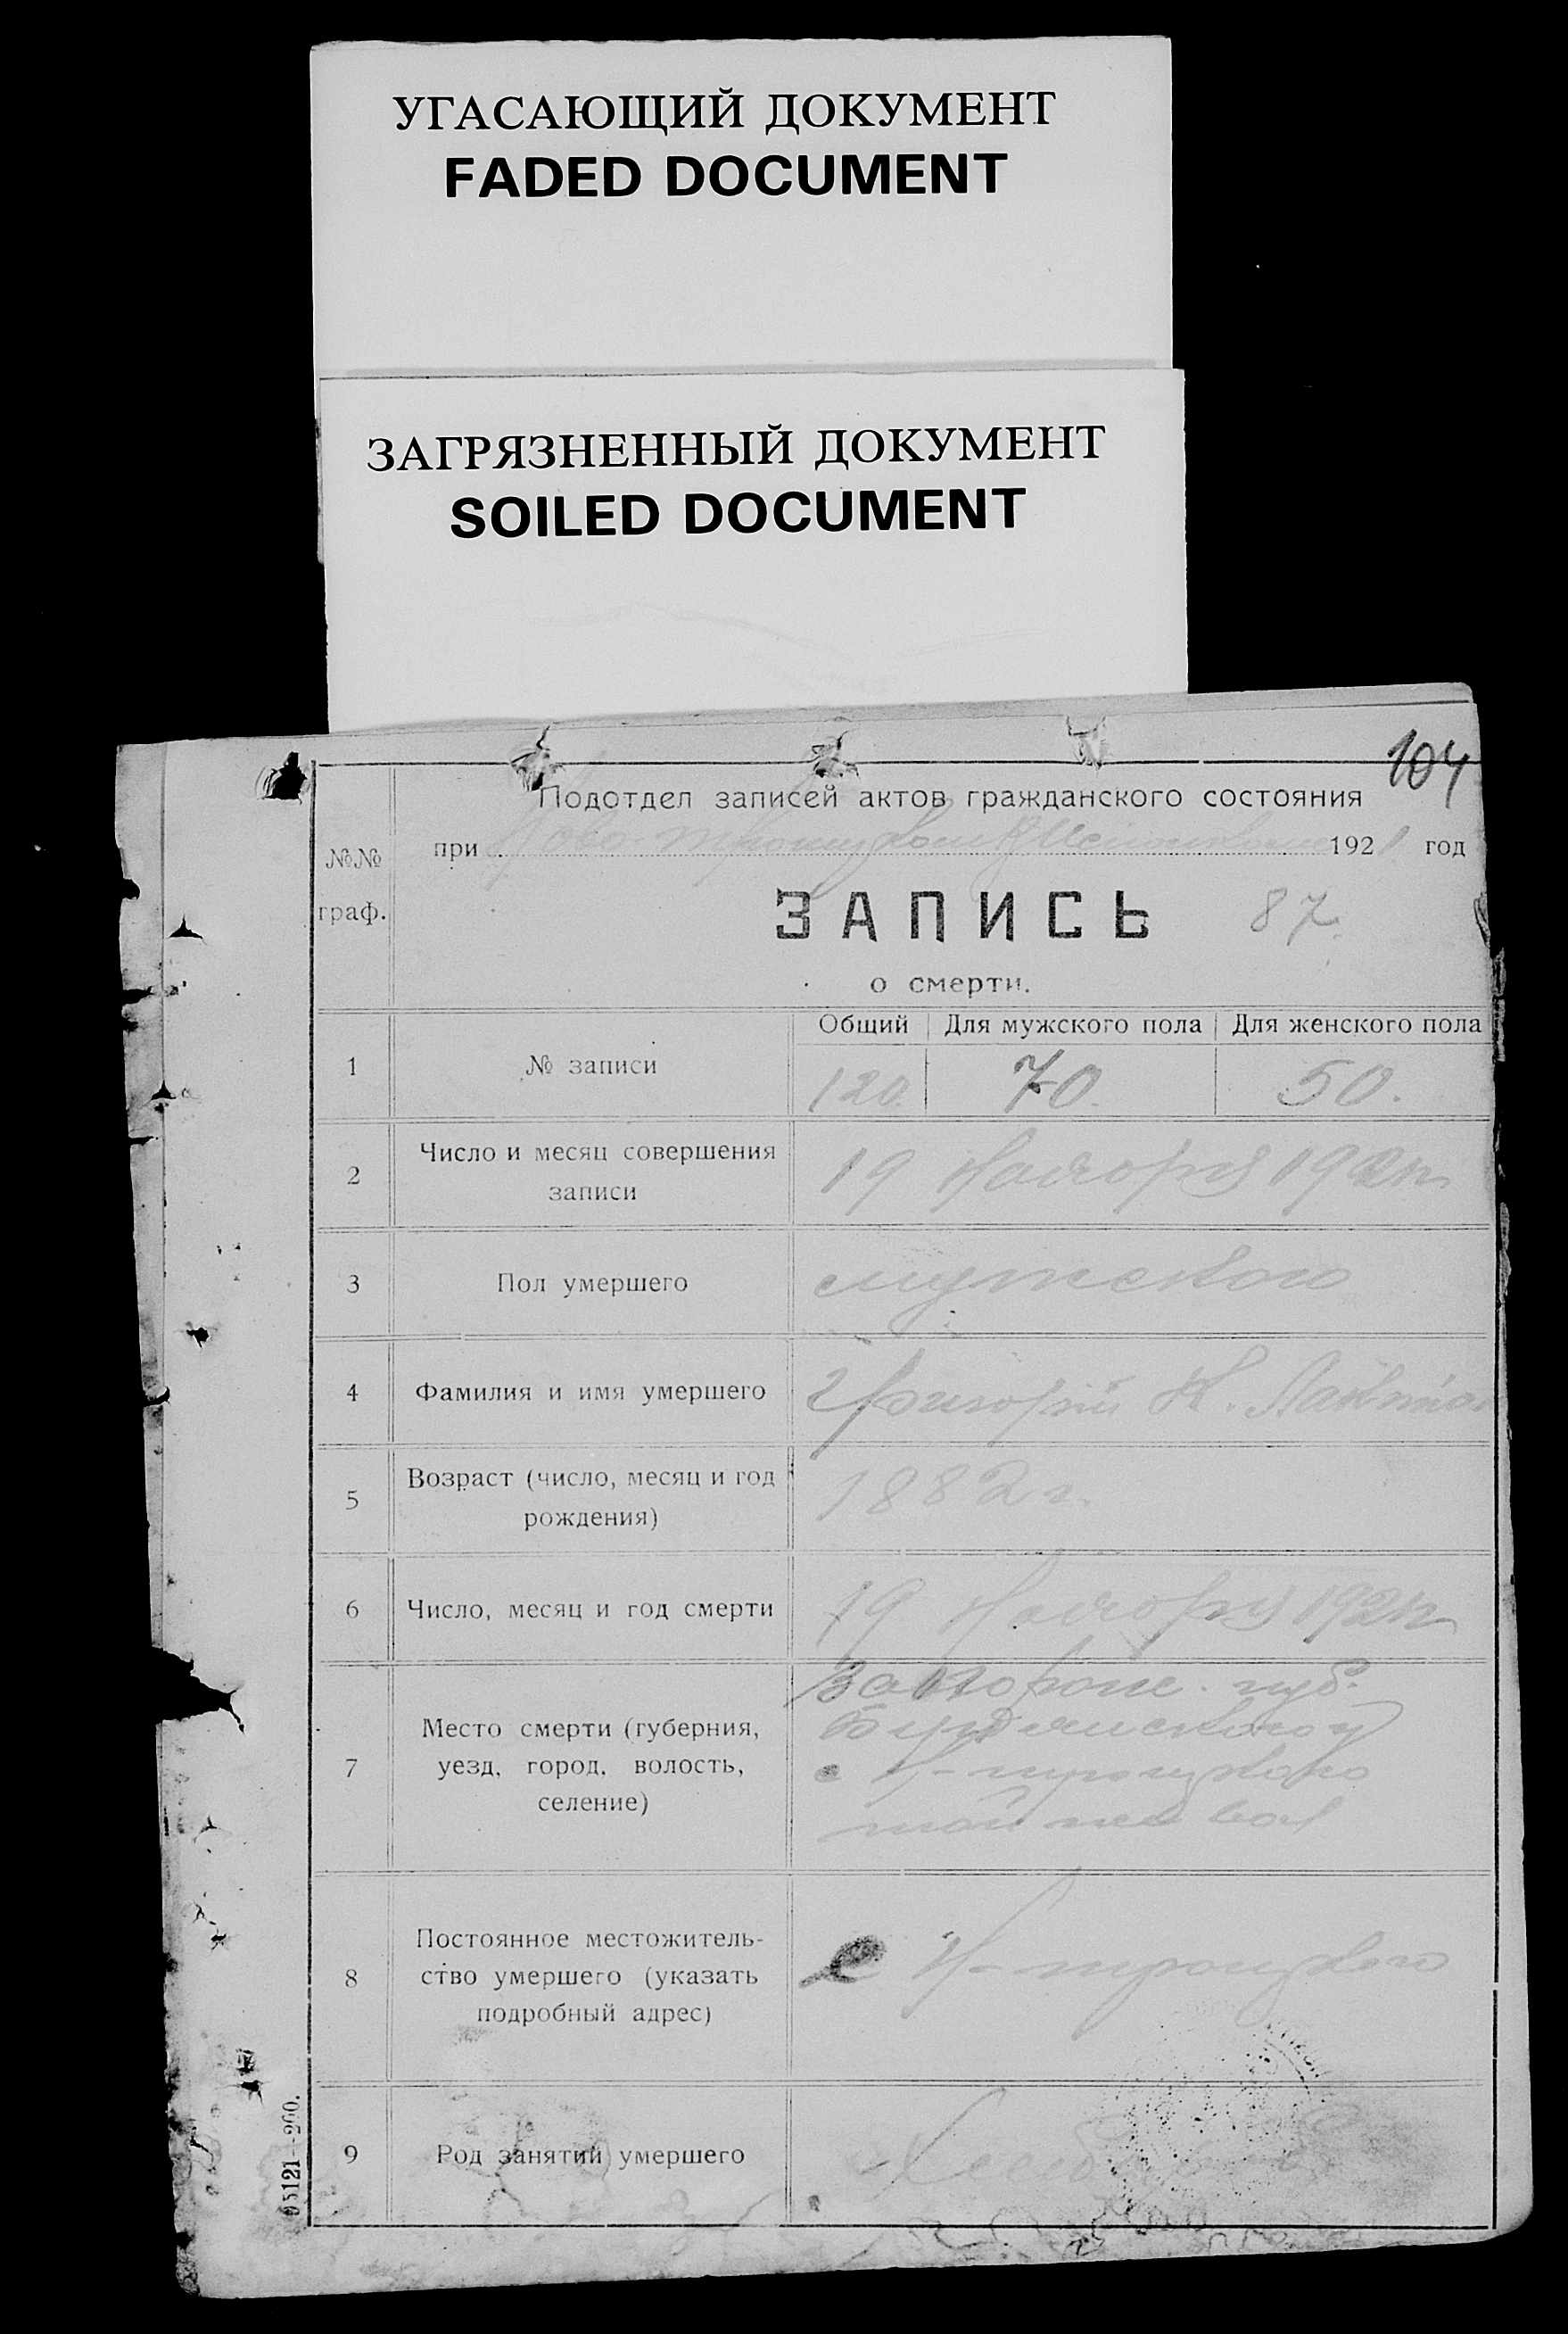 УГАСАЮЩИЙ ДОКУМЕНТ
FADED DOCUMENT
ЗАГРЯЗНЕННЫЙ ДОКУМЕНТ
SOILED DOCUMENT
104
Подотдел записей актов гражданского состояния
№№ граф.
при 192 год
ЗАПИСЬ 87
о смерти.
Общий Для мужского пола Для женского пола
1 № записи 120. 70. 50.
2 Число и месяц совершения
записи
19 1921 г.
3 Пол умершего мужского
4 Фамилия и имя умершего Григорий К.
5 Возраст (число, месяц и год
рождения)
1882 г.
6 Число, месяц и год смерти 19 1921 г.
7 Место смерти (губерния,
уезд, город, волость,
селение)
губ.
Бердянского у
с Н-троицкого
той же вол
8 Постоянное местожитель-
ство умершего (указать
подробный адрес)
с Н-троицкого
9 Род занятий умершего